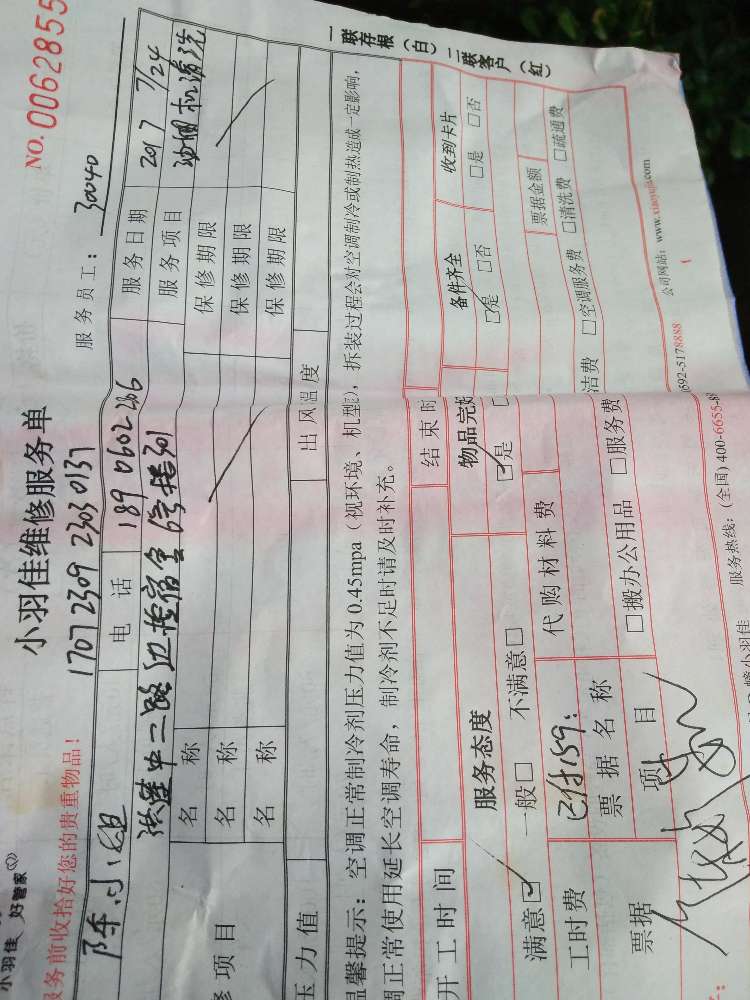 小羽佳 好管家
小羽佳维修服务单
NO. 0062855
服务前收拾好您的贵重物品!
1707 2309 2303 0137
服务员工: 30040
陈小姐 电话 189 0602 286 服务日期 2017 7/24
莲中二路边检宿舍 301 服务项目 油烟机清洗
修项目 名称 保修期限
名称 保修期限
名称 保修期限
压力值 出风温度
温馨提示: 空调正常制冷剂压力值为0.45mpa(视环境、机型), 拆装过程会对空调制冷或制热造成一定影响,
调正常使用延长空调寿命, 制冷剂不足时请及时补充。
开工时间 结束时
服务态度 物品完好 备件齐全 收到卡片
满意☑ 一般□ 不满意□ ☑是 ☑是 □否 □是 □否
工时费 已付159: 代购材料费 票据金额
票据 票据名称 洁费 □空调服务费 □清洗费 □疏通费
项目 □搬办公用品 □服务费
服务热线: (全国) 400-6655-8
0592-5178888
公司网站: www.xiaoyujia.com
一联存根(白) 二联客户(红)